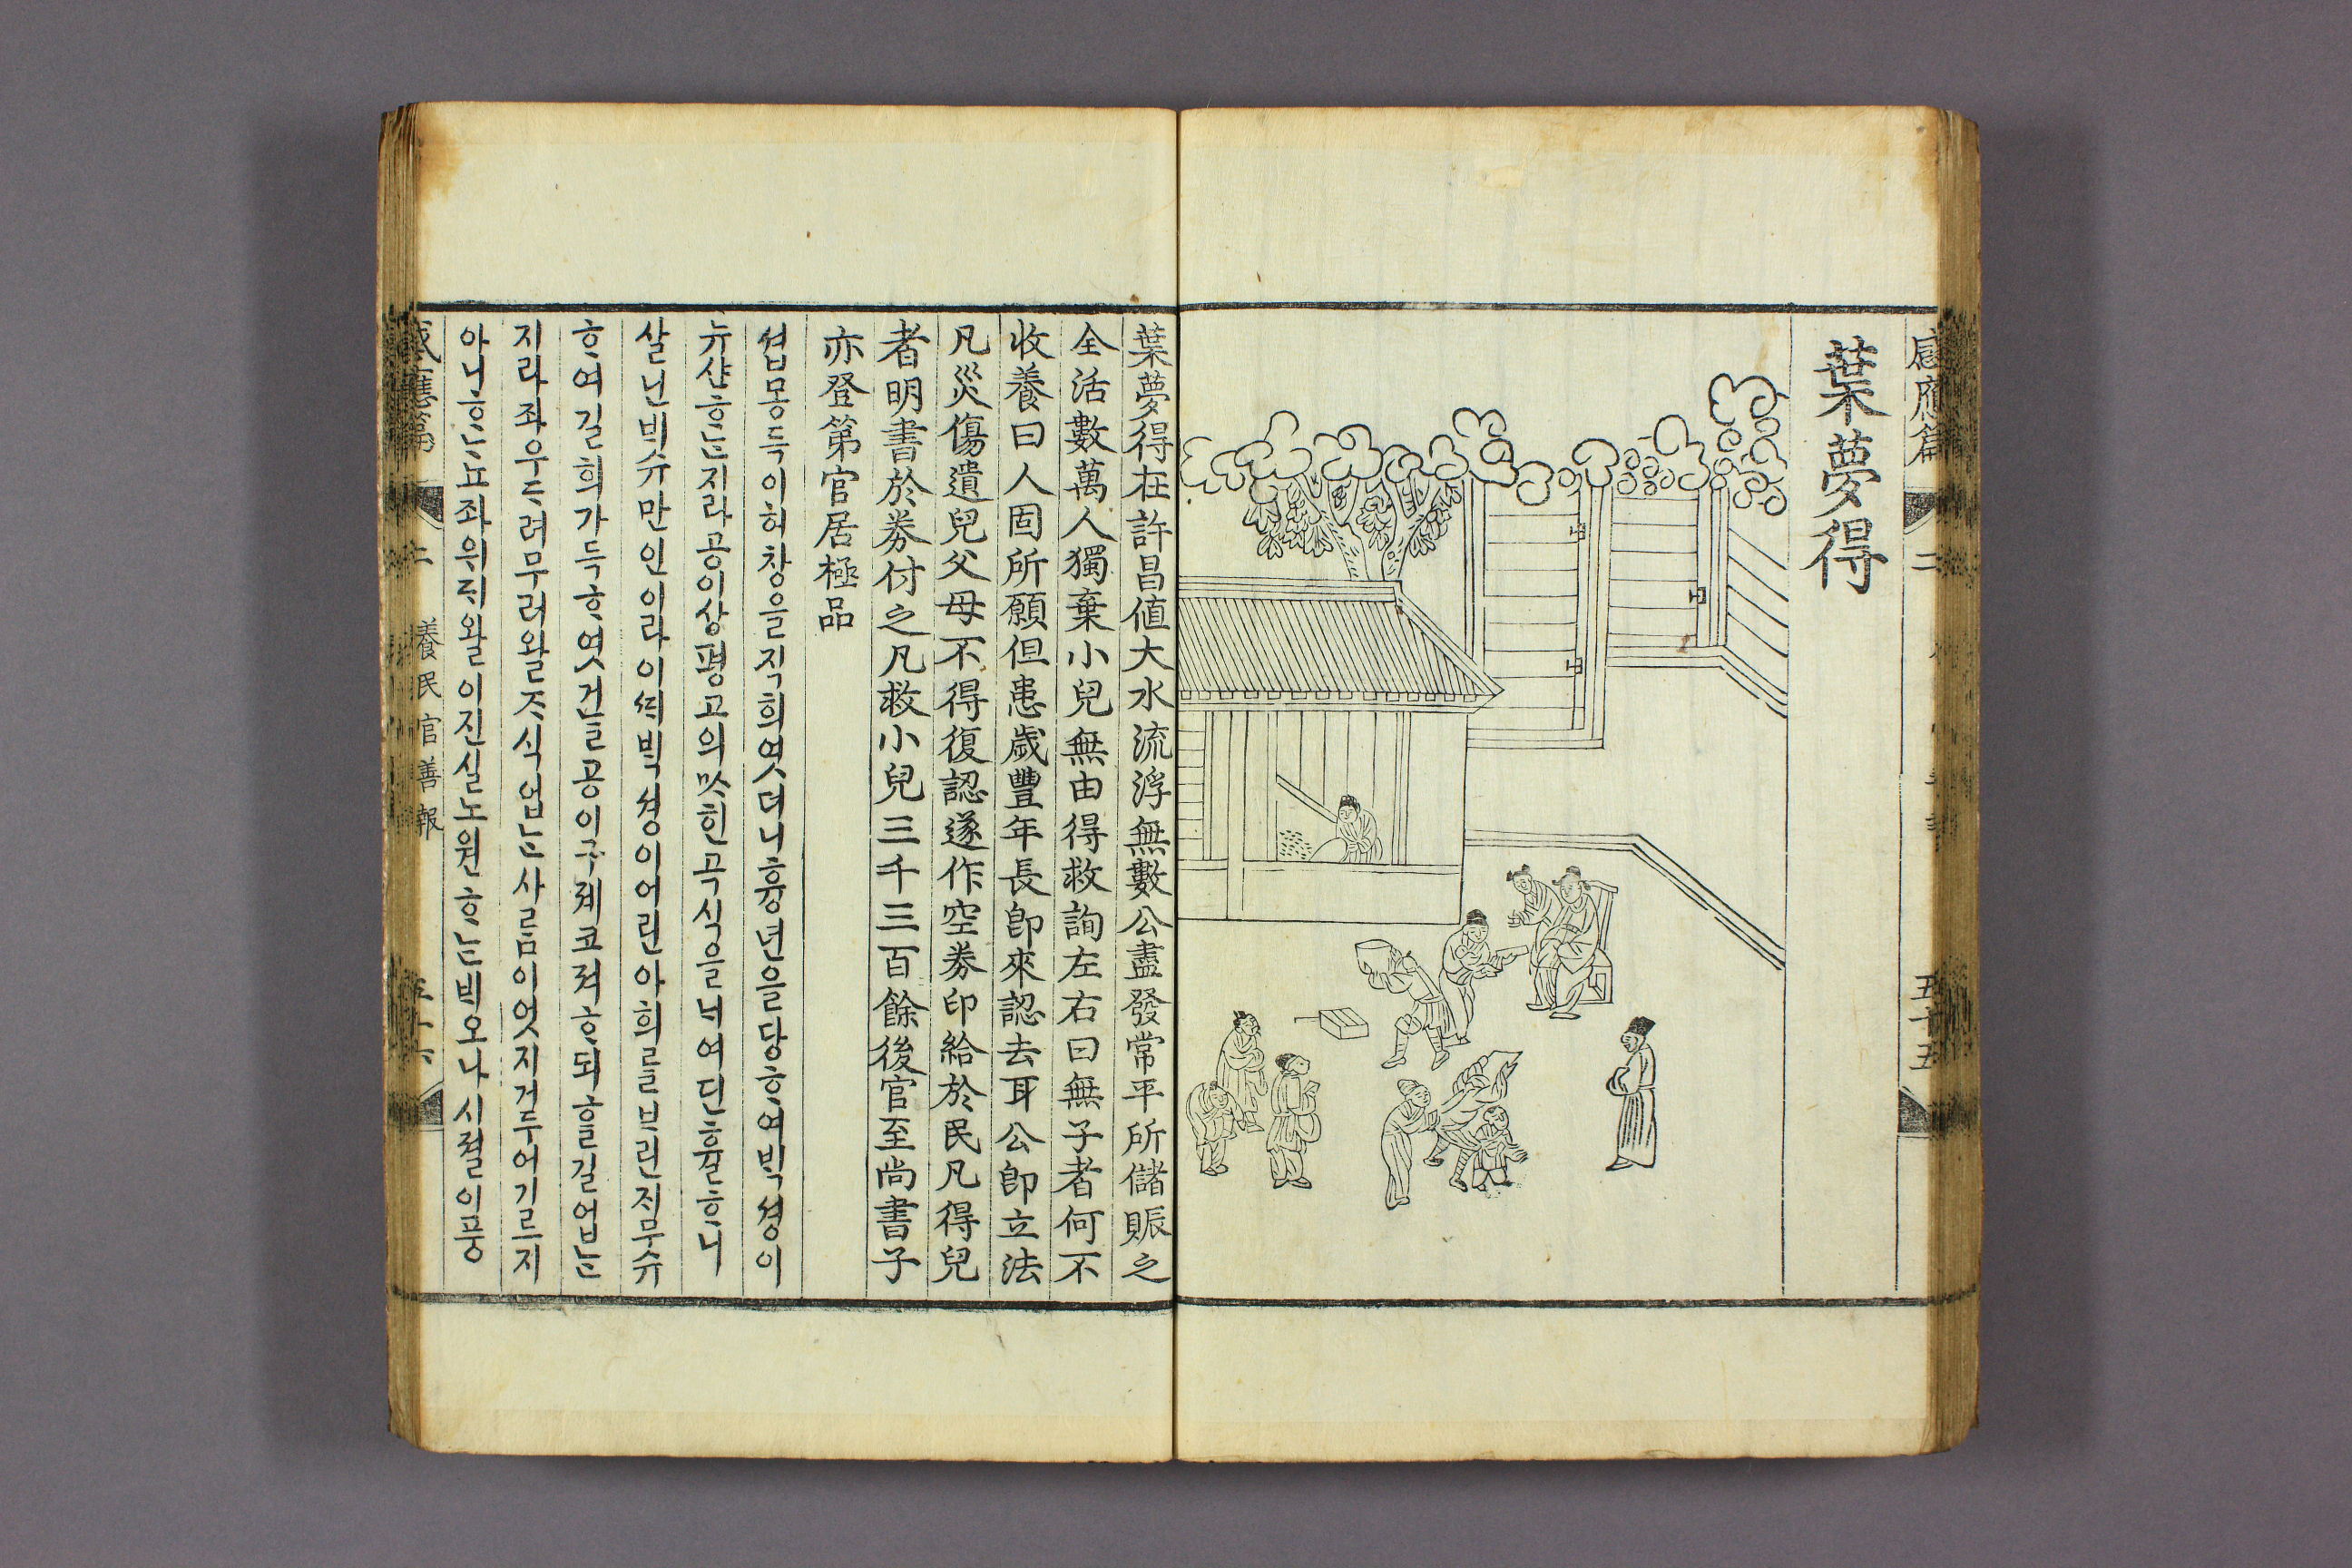 感應篇 二 五十五
葉夢得
葉夢得在許昌値大水流浮無數公盡發常平所儲賑之
全活數萬人獨棄小兒無由得救詢左右曰無子者何不
收養曰人固所願但患歲豐年長卽來認去耳公卽立法
凡災傷遺兒父母不得復認遂作空券印給於民凡得兒
者明書於券付之凡救小兒三千三百餘後官至尚書子
亦登第官居極品
섭몽득이허창을직희엿더니흉년을당ᄒᆞ여ᄇᆡᆨ셩이
뉴샨ᄒᆞᄂᆞᆫ지라공이상평고의맛힌곡식을ᄂᆡ여딘휼ᄒᆞ니
살닌ᄇᆡ슈만인이라이ᄯᆡᄇᆡᆨ셩이어린아희ᄅᆞᆯᄇᆞ린ᄌᆡ무슈
ᄒᆞ여길희가득ᄒᆞ엿거ᄂᆞᆯ공이구졔코져ᄒᆞ되ᄒᆞᆯ길업ᄂᆞᆫ
지라좌우ᄃᆞ려무러왈ᄌᆞ식업ᄂᆞᆫ사ᄅᆞᆷ이엇지거두어기르지
아니ᄒᆞᄂᆞ뇨좌위ᄃᆡ왈이진실노원ᄒᆞᄂᆞᆫᄇᆡ오나시졀이풍
感應篇 二 養民官善報 五十六